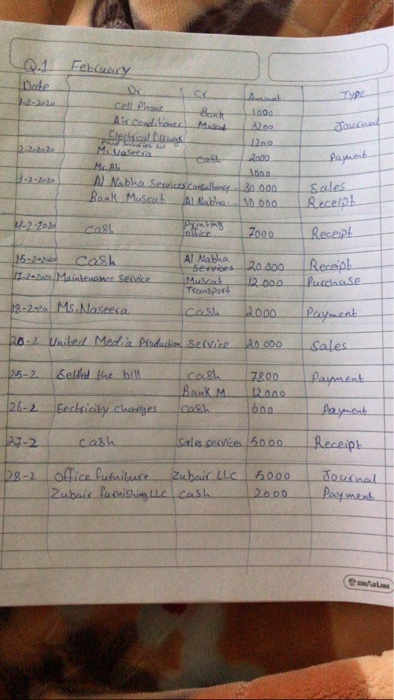 Q.1 February
Date Dr Cr Amount Type
1-2-2020 Cell Phone Bank 1000
Air conditioner Muscat 3200 Journal
Electrical fittings 1200
2-2-2020 Ms. Naseera cash 2000 Payment
Mr. Ali 1000
3-2-2020 Al Nabha Services consultancy - 30 000 Sales
Bank Muscat Al Nabha - 10 000 Receipt
4-2-2020 cash Printing office 7000 Receipt
15-2-2020 cash Al Nabha Services 20 000 Receipt
17-2-2020 Maintenance service Muscat Transport 12 000 Purchase
19-2-20 Ms. Naseera cash 2000 Payment
20-2 United Media Production Service 20 000 Sales
25-2 Settled the bill cash 7800 Payment
Bank M 12000
26-2 Eectricity charges cash 600 Payment
27-2 cash Sales services 5000 Receipt
28-2 Office furniture Zubair LLC 5000 Journal
Zubair furnishing LLC cash 2000 Payment
SINARLINE